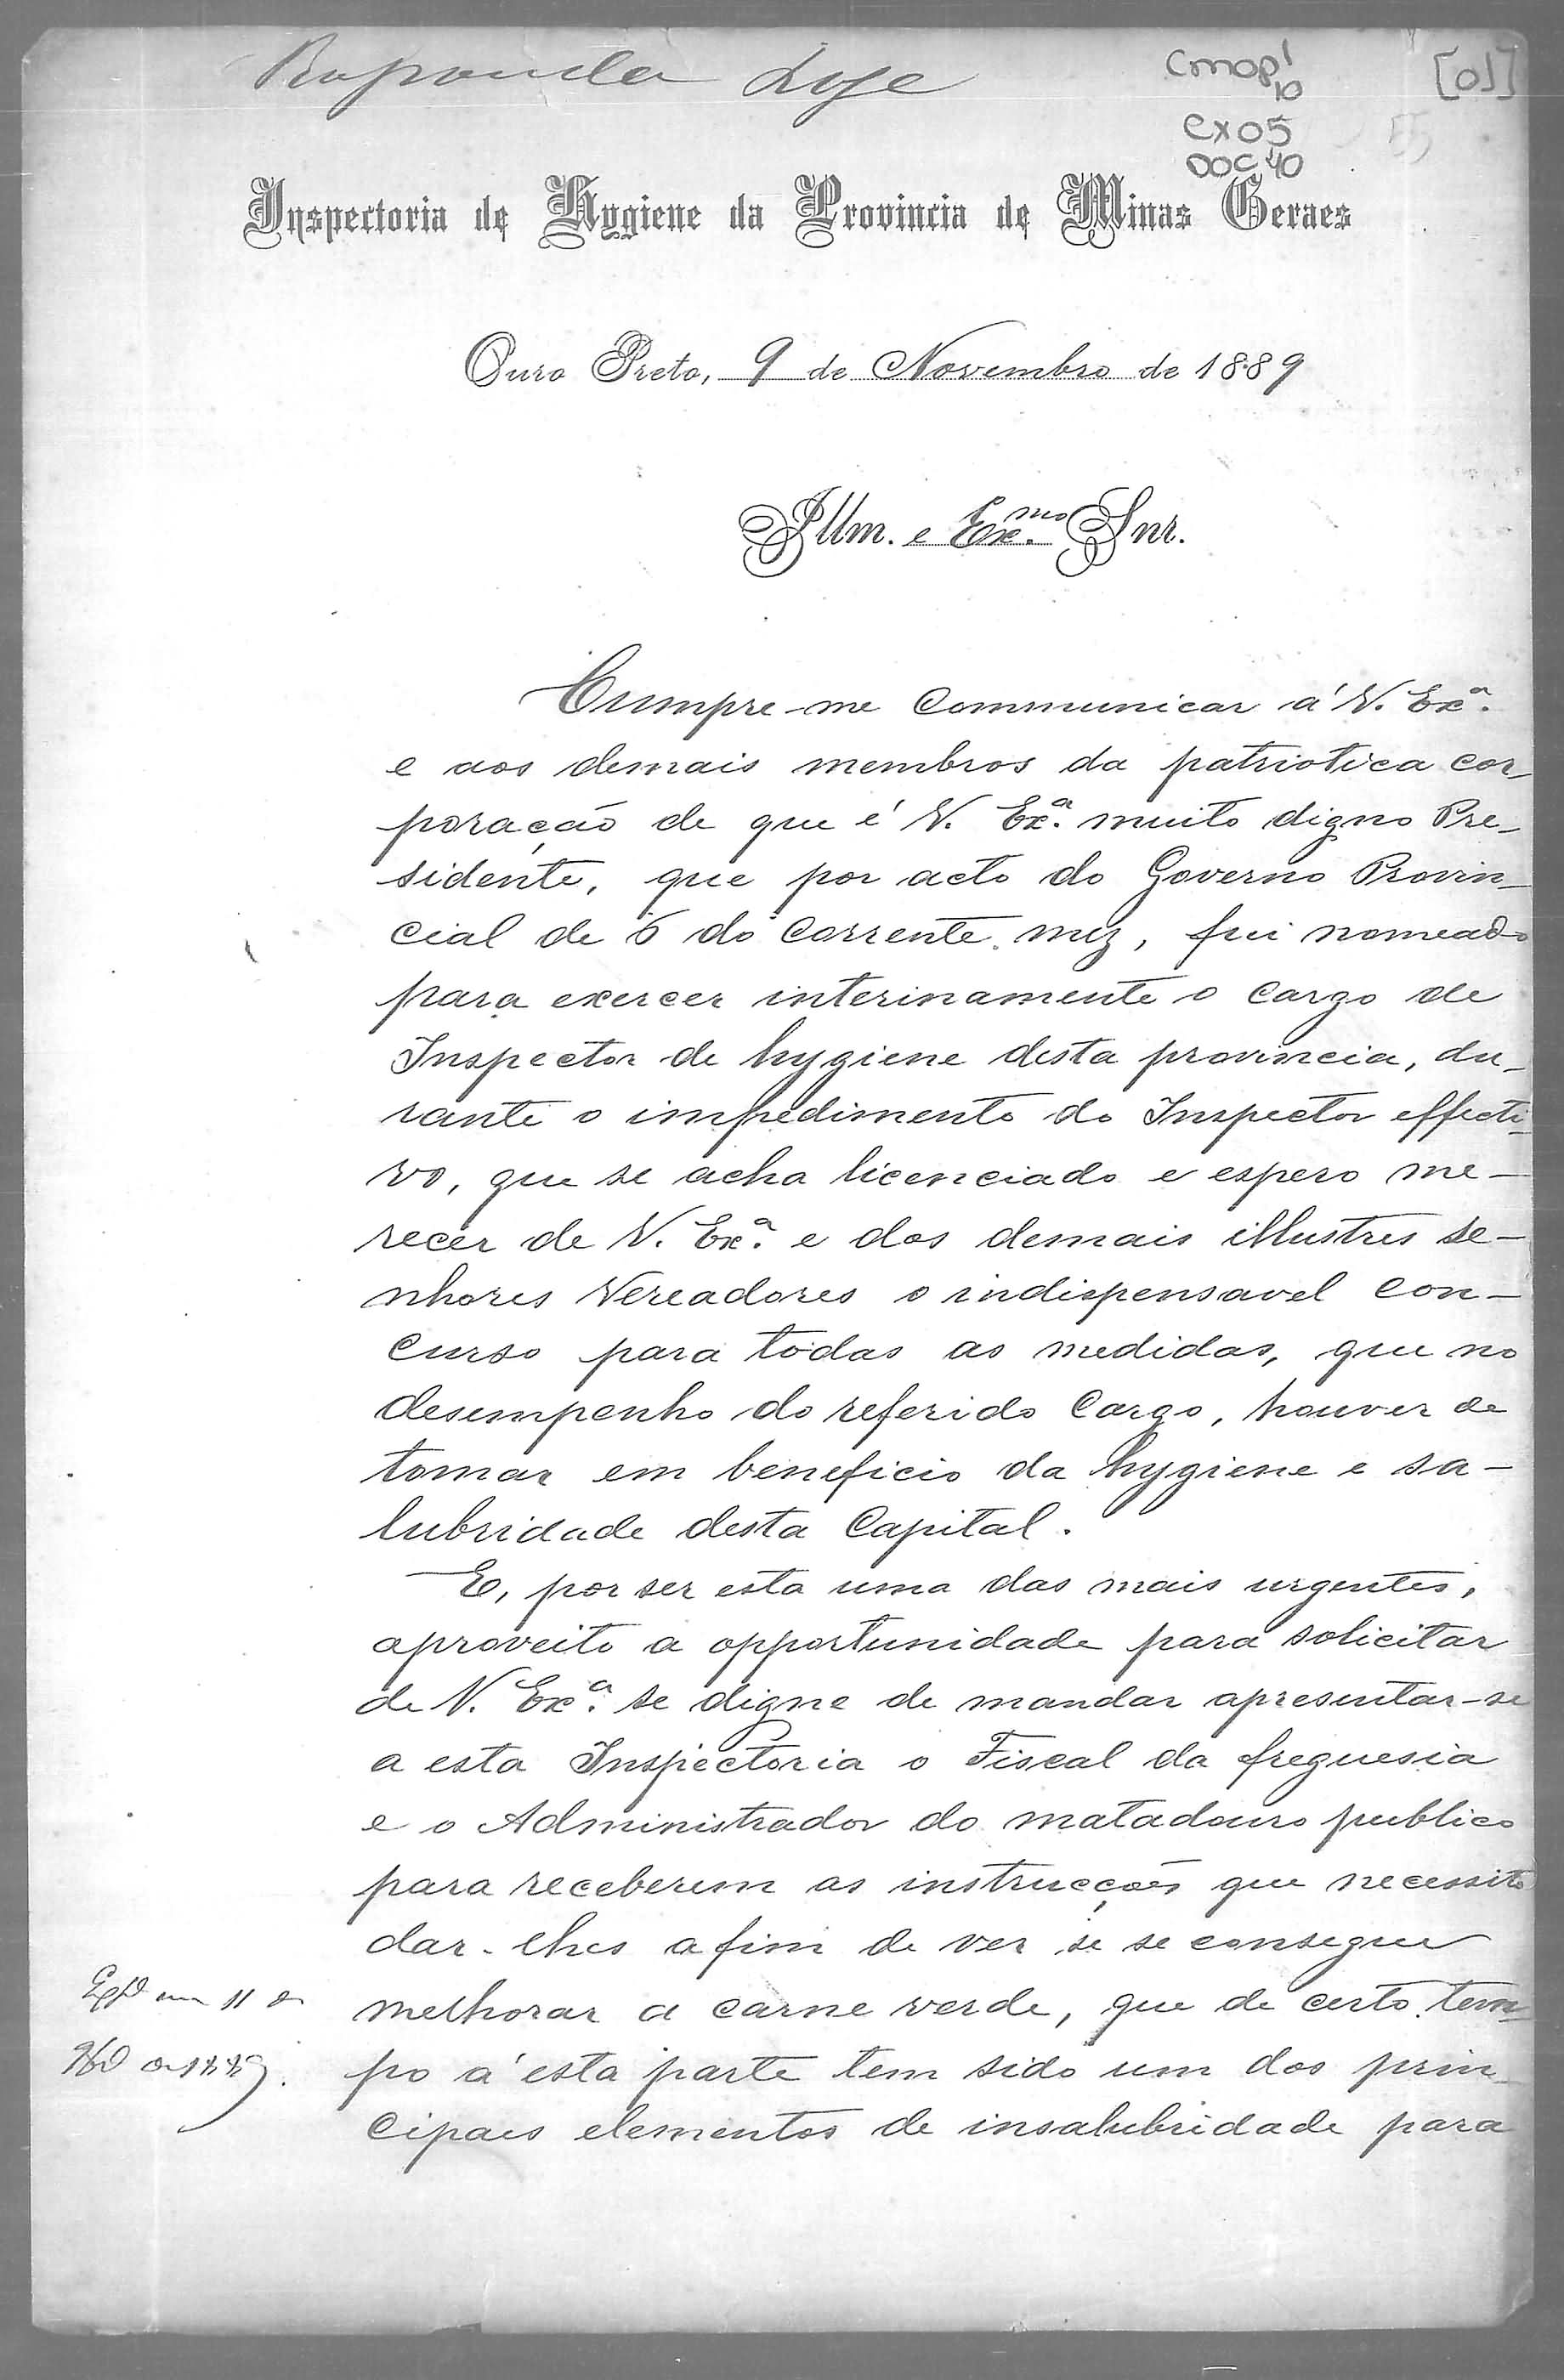 Responda hoje
CmopI
10
[01]
CX05
DOC 40
Inspectoria de Hygiene da Provincia de Minas Geraes
Ouro Preto, 9 de Novembro de 1889
Illm. e Ex.mo Snr.
Cumpre-me Communicar á V. Ex.a
e aos demais membros da patriotica cor-
poração de que é V. Ex.a muito digno Pre-
sidente, que por acto do Governo Provin-
cial de 6 do Corrente mez, fui nomeado
para exercer interinamente o Cargo de
Inspector de hygiene desta provincia, du-
rante o impedimento do Inspector effecti-
vo, que se acha licenciado e espero me-
recer de V. Ex.a e dos demais illustres se-
nhores Vereadores o indispensavel con-
curso para todas as medidas, que no
desempenho do referido Cargo, houver de
tomar em beneficio da hygiene e sa-
lubridade desta Capital.
E, por ser esta uma das mais urgentes,
aproveito a opportunidade para solicitar
de V. Ex.a se digne de mandar apresentar-se
a esta Inspectoria o Fiscal da freguesia
e o Administrador do matadouro publico
para receberem as instrucções que necessito
dar-lhes a fim de ver si se consegue
melhorar a carne verde, que de certo tem-
po á esta parte tem sido um dos prin-
cipaes elementos de insalubridade para
em 11 de
de 1889.